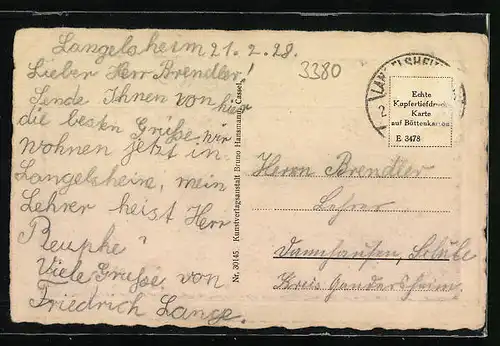 Langelsheim 21.2.28.
Lieber Herr Brendler!
Sende Ihnen von hier
die besten Grüße. wir
wohnen jetzt in
Langelsheim, mein
Lehrer heist Herr
Viele Grüße von
Friedrich Lange.
3380
Nr. 30145 Kunstverlagsanstalt Bruno Hansmann, Cassel
LANGELSHEIM
Echte
Kupfertiefdruck
Karte
auf Büttenkarton
E 3478
Herrn Brendler
Lehrer
Dannhausen, Schule
Kreis Gandersheim.